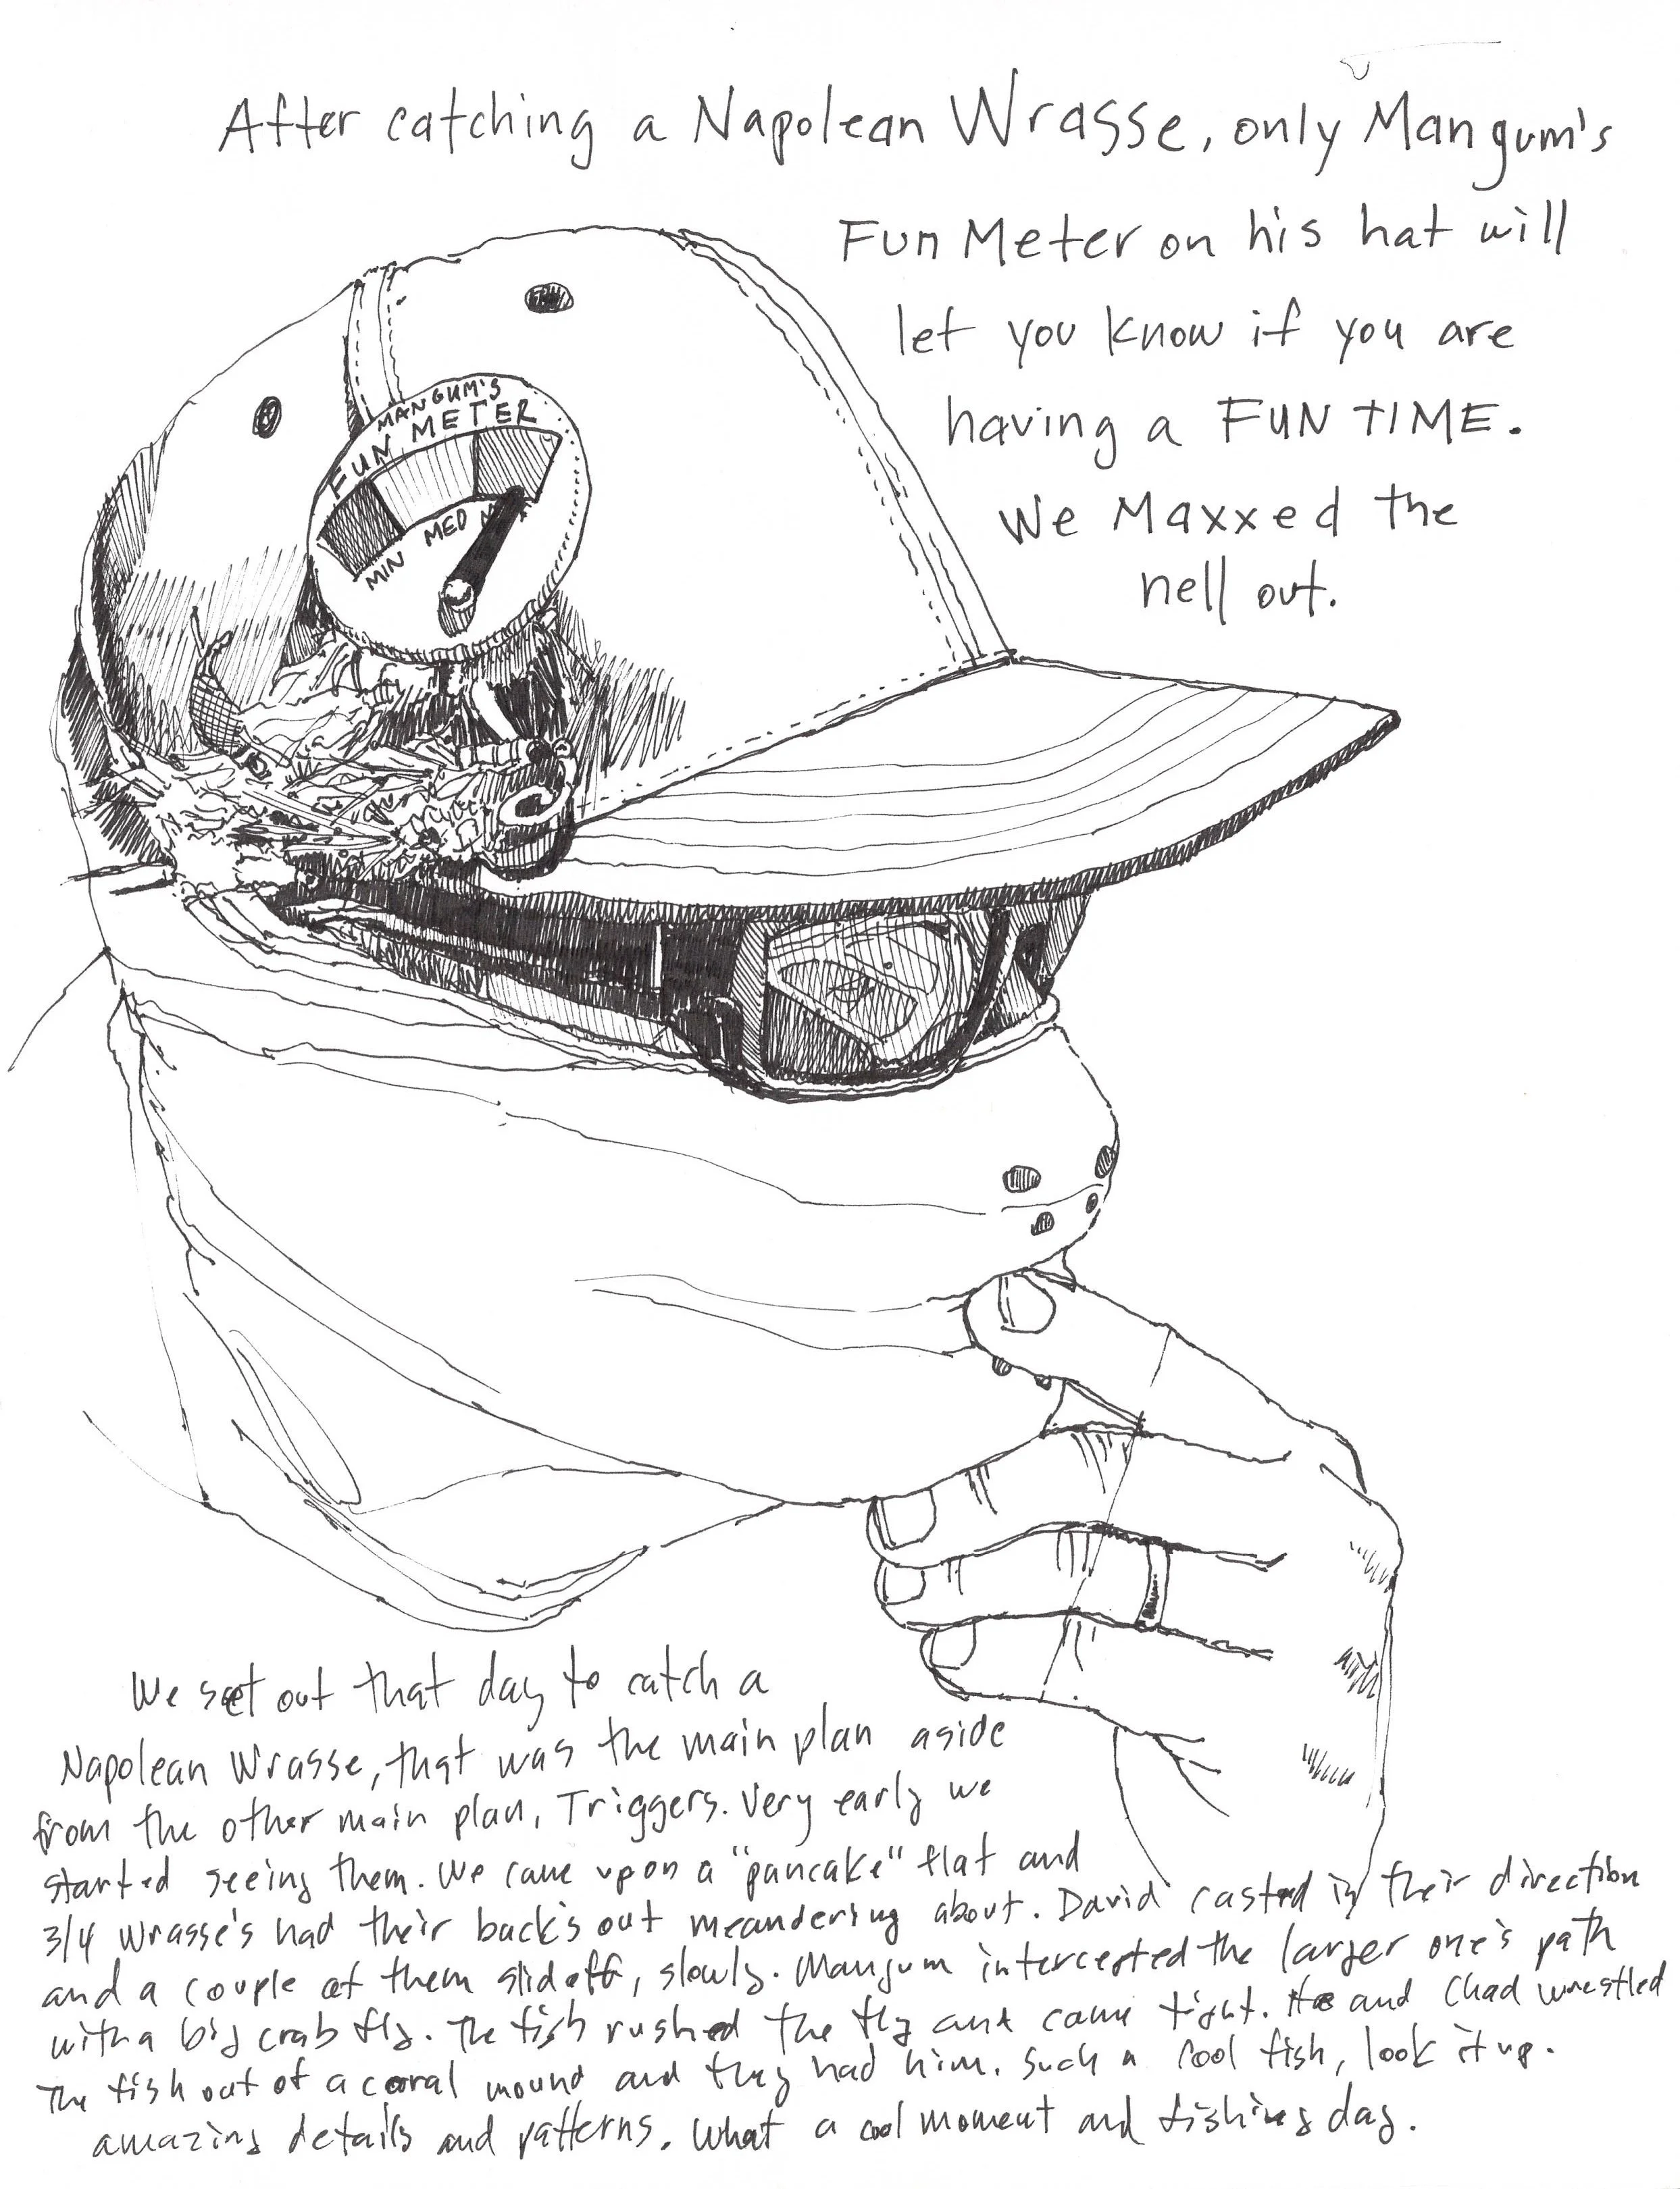 After catching a Napolean Wrasse, only Mangum's
Fun Meter on his hat will
let you know if you are
having a FUN TIME.
We Maxxed the
hell out.
MANGUM'S
FUN METER
MIN MED
We set out that day to catch a
Napolean Wrasse, that was the main plan aside
from the other main plan, Triggers. Very early we
started seeing them. We came upon a "pancake" flat and
3/4 Wrasse's had their back's out meandering about. David casted in their direction
and a couple of them slid off, slowly. Mangum intercepted the larger one's path
with a big crab fly. The fish rushed the fly and came tight. He and Chad wrestled
The fish out of a coral mound and they had him. Such a cool fish, look it up.
amazing details and patterns. What a cool moment and fishing day.